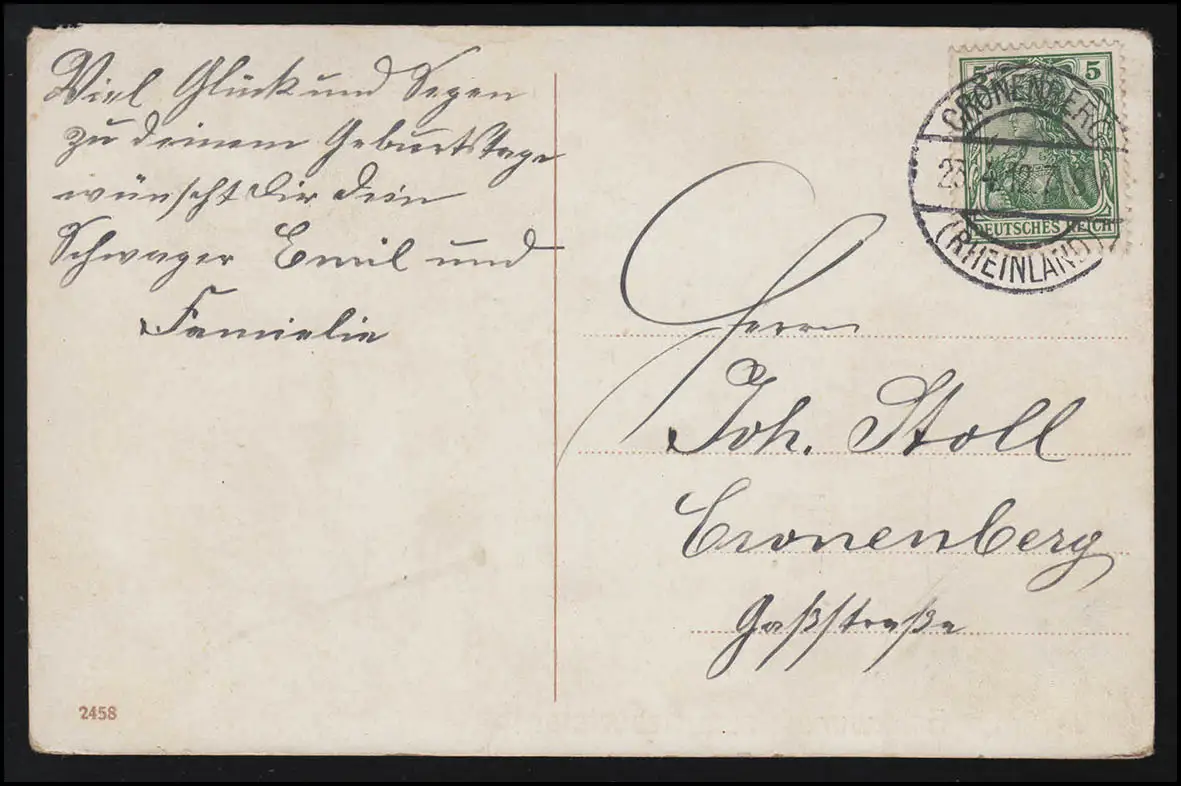 Viel Glück und Segen
zu deinem Geburtstage
wünscht dir dein
Schwager Emil und
Famielie
5 5
CRONENBERG
4.12.7
(RHEINLAND)
DEUTSCHES REICH
Herrn
Joh. Stoll
Cronenberg
2458